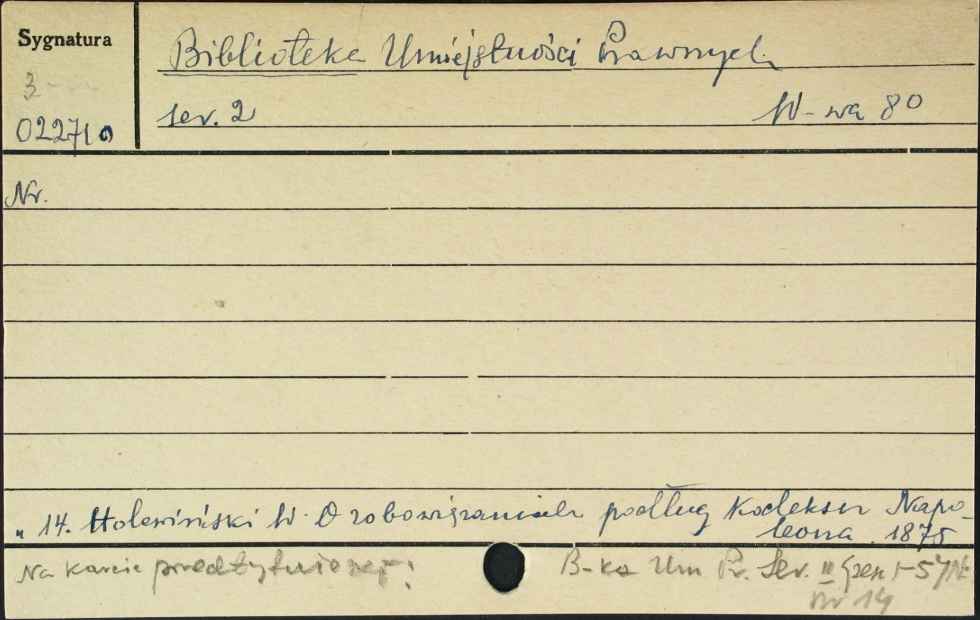 Sygnatura
3
02271
Biblioteka Umiejętności Prawnych
ser. 2 W-wa 8°
Nr.
„ 14. Holewiński W. O zobowiązaniach podług Kodeksu Napo-
leona. 1875
Na karcie przedtytułowej: B-ka Um Pr. Ser. II
nr 14